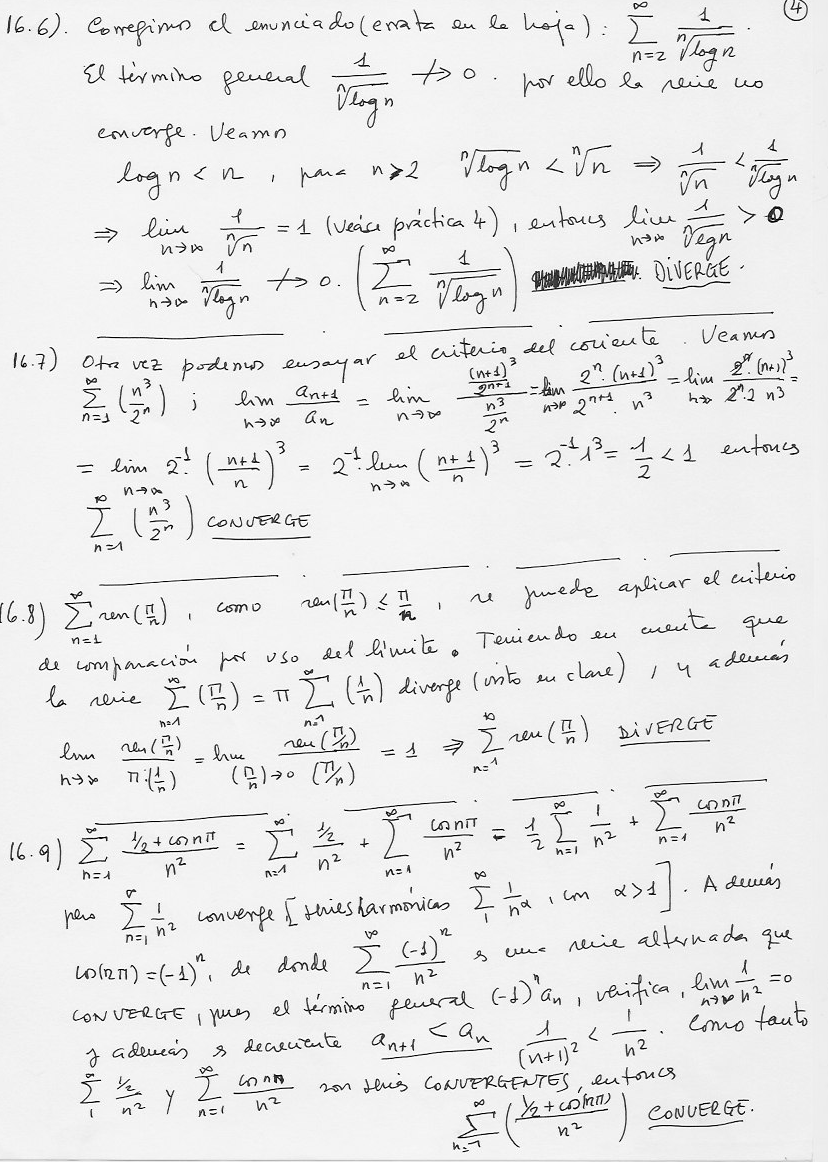 ④
16.6). Corregimos el enunciado (errata en la hoja): $\sum_{n=2}^{\infty} \frac{1}{\sqrt[n]{\log n}}$.
El término general $\frac{1}{\sqrt[n]{\log n}} \not\to 0$. por ello la serie no
converge. Veamos
$\log n < n$, para $n \geq 2$ $\sqrt[n]{\log n} < \sqrt[n]{n} \Rightarrow \frac{1}{\sqrt[n]{n}} < \frac{1}{\sqrt[n]{\log n}}$
$\Rightarrow \lim_{n\to\infty} \frac{1}{\sqrt[n]{n}} = 1$ (Veáse práctica 4), entonces $\lim_{n\to\infty} \frac{1}{\sqrt[n]{\log n}} > 0$
$\Rightarrow \lim_{n\to\infty} \frac{1}{\sqrt[n]{\log n}} \not\to 0$. $\left(\sum_{n=2}^{\infty} \frac{1}{\sqrt[n]{\log n}}\right)$ DIVERGE.
16.7) Otra vez podemos ensayar el criterio del cociente. Veamos
$\sum_{n=1}^{\infty} \left(\frac{n^3}{2^n}\right)$; $\lim_{n\to\infty} \frac{a_{n+1}}{a_n} = \lim_{n\to\infty} \frac{\frac{(n+1)^3}{2^{n+1}}}{\frac{n^3}{2^n}} = \lim_{n\to\infty} \frac{2^n \cdot (n+1)^3}{2^{n+1} \cdot n^3} = \lim_{n\to\infty} \frac{2^n \cdot (n+1)^3}{2^n \cdot 2 \; n^3} =$
$= \lim_{n\to\infty} 2^{-1} \cdot \left(\frac{n+1}{n}\right)^3 = 2^{-1} \cdot \lim_{n\to\infty} \left(\frac{n+1}{n}\right)^3 = 2^{-1} \cdot 1^3 = \frac{1}{2} < 1$ entonces
$\sum_{n=1}^{\infty} \left(\frac{n^3}{2^n}\right)$ CONVERGE
16.8) $\sum_{n=1}^{\infty} \operatorname{sen}\left(\frac{\pi}{n}\right)$, como $\operatorname{sen}\left(\frac{\pi}{n}\right) \leq \frac{\pi}{n}$, se puede aplicar el criterio
de comparación por uso del límite. Teniendo en cuenta que
la serie $\sum_{n=1}^{\infty} \left(\frac{\pi}{n}\right) = \pi \sum_{n=1}^{\infty} \left(\frac{1}{n}\right)$ diverge (visto en clase), y además
$\lim_{n\to\infty} \frac{\operatorname{sen}\left(\frac{\pi}{n}\right)}{\pi \cdot \left(\frac{1}{n}\right)} = \lim_{\left(\frac{\pi}{n}\right)\to 0} \frac{\operatorname{sen}(\pi/n)}{(\pi/n)} = 1 \Rightarrow \sum_{n=1}^{\infty} \operatorname{sen}\left(\frac{\pi}{n}\right)$ DIVERGE
16.9) $\sum_{n=1}^{\infty} \frac{1/2 + \cos n\pi}{n^2} = \sum_{n=1}^{\infty} \frac{1/2}{n^2} + \sum_{n=1}^{\infty} \frac{\cos n\pi}{n^2} = \frac{1}{2} \sum_{n=1}^{\infty} \frac{1}{n^2} + \sum_{n=1}^{\infty} \frac{\cos n\pi}{n^2}$
pero $\sum_{n=1}^{\infty} \frac{1}{n^2}$ converge [series harmónicas $\sum_{1}^{\infty} \frac{1}{n^\alpha}$, con $\alpha > 1$]. Además
$\cos(n\pi) = (-1)^n$, de donde $\sum_{n=1}^{\infty} \frac{(-1)^n}{n^2}$ es una serie alternada que
CONVERGE, pues el término general $(-1)^n a_n$, verifica, $\lim_{n\to\infty} \frac{1}{n^2} = 0$
y además es decreciente $a_{n+1} < a_n$ $\frac{1}{(n+1)^2} < \frac{1}{n^2}$. Como tanto
$\sum_{1}^{\infty} \frac{1/2}{n^2}$ y $\sum_{n=1}^{\infty} \frac{\cos n\pi}{n^2}$ son series CONVERGENTES, entonces
$\sum_{n=1}^{\infty} \left(\frac{1/2 + \cos(n\pi)}{n^2}\right)$ CONVERGE.